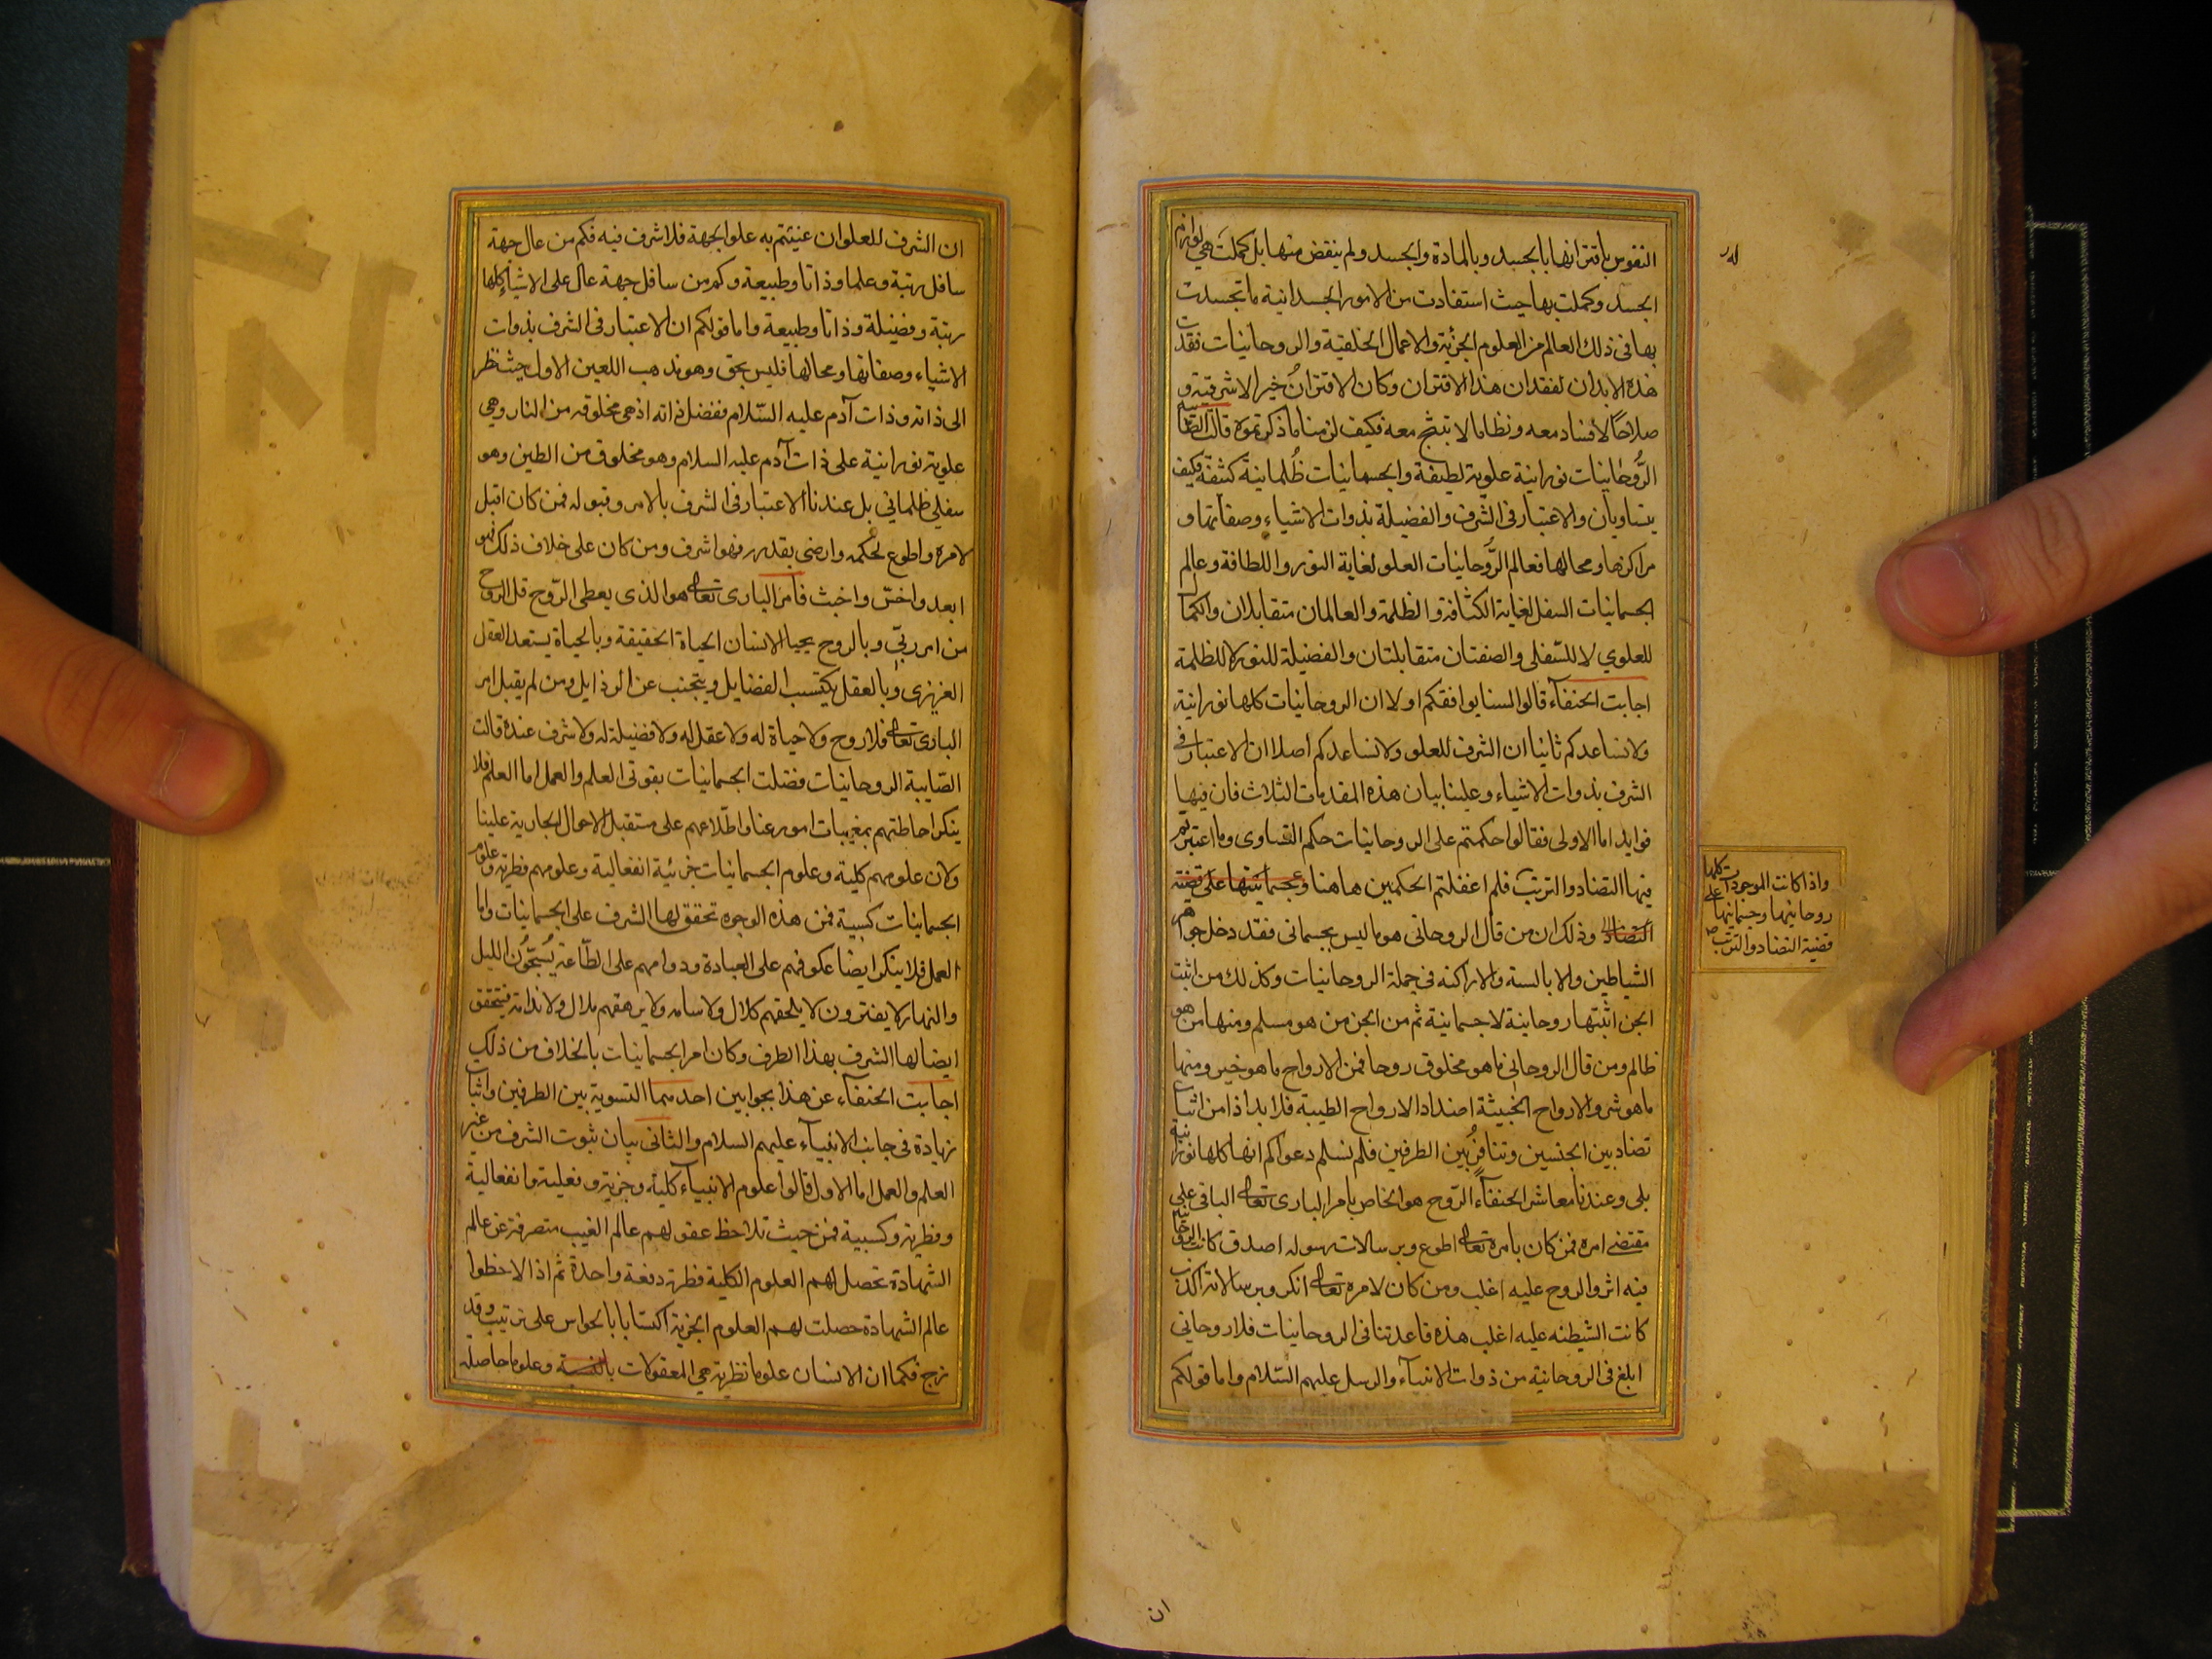 النفوس باقترانها بالجسد وبالمادة والجسد ولم ينقص منها بل كملت هي لوازم
الجسد وكملت بها حيث استفادت من الامور الجسدانية ما تجسدت
بها في ذلك العالم من العلوم الجزئية والاعمال الخلقية والروحانيات فقدت
هذه الابدان لفقدان هذا الاقتران وكان الاقتران خيرا لا شر فيه و
صلاحا لا فساد معه ونظاما لا معه فكيف لزمنا ما ذكرتموه قالت الصابية
الروحانيات نورانية علوية لطيفة والجسمانيات ظلمانية كثيفة فكيف
يتساويان والاعتبار في الشرف والفضيلة بذوات الاشياء وصفاتها و
مراكزها ومحالها فعالم الروحانيات العلو لغاية النور واللطافة وعالم
الجسمانيات السفل لغاية الكثافة والظلمة والعالمان متقابلان والكمال
للعلوي لا للسفلي والصفتان متقابلتان والفضيلة للنور لا للظلمة
اجابت الحنفآء قالوا لسنا يوافقكم اولا ان الروحانيات كلها نورانية
ولا نساعدكم ثانيا ان الشرف للعلو ولا نساعدكم اصلا ان الاعتبار في
الشرف بذوات الاشياء وعلينا بيان هذه المقدمات الثلاث فان فيها
فوايد اما الاولى فقالوا حكمتم على الروحانيات حكم التساوي وما اعتبرتم
فيها التضاد والترتب فلم اغفلتم الحكمين هاهنا وجسمانيتها على قضية
التضاد وذلك ان من قال الروحاني هو ما ليس بجسماني فقد دخل جواهر
الشياطين والابالسة والاراكنه في جملة الروحانيات وكذلك من اثبت
الجن اثبتها روحانية لا جسمانية ثم من الجن من هو مسلم ومنها من هو
ظالم ومن قال الروحاني ما هو مخلوق روحا فمن الارواح ما هو خير ومنها
ما هو شر والارواح الخبيثة اضداد الارواح الطيبة فلا بد اذا من اثبات
تضاد بين الجنسين وتنافر بين الطرفين فلم نسلم دعواكم انها كلها نورانية
بلى وعندنا معاشر الحنفآء الروح هو الخاص بامر الباري تعالى الباقي على
مقتضى امره فمن كان بامره تعالى اطوع وبرسالات رسوله اصدق كانت الروحانية
فيه اثر والروح عليه اغلب ومن كان لامره تعالى انكر وبرسالاته اكذب
كانت الشيطنه عليه اغلب هذه قاعدتنا في الروحانيات فلا روحاني
ابلغ في الروحانية من ذوات الانبيآء والرسل عليهم السلام واما قولكم
واذا كانت الموجودات كلها
روحانيتها وجسمانيتها على
قضية التضاد والترتب صح
ان
ان الشرف للعلو ان عنيتم به علو الجهة فلا شرف فيه فكم من عال جهة
سافل رتبة وعلما وذاتا وطبيعة وكم من سافل جهة عال على الاشياء كلها
رتبة وفضيلة وذاتا وطبيعة واما قولكم ان الاعتبار في الشرف بذوات
الاشياء وصفاتها ومحالها فليس بحق وهو مذهب اللعين الاول حيث نظر
الى ذاته وذات آدم عليه السلام ففضل ذاته اذ هي مخلوقه من النار وهي
علوية نورانية على ذات آدم عليه السلام وهو مخلوق من الطين وهو
سفلي ظلماني بل عندنا الاعتبار في الشرف بالامر وقبوله فمن كان اقبل
لامره واطوع لحكمه وارضى بقدره فهو اشرف ومن كان على خلاف ذلك فهو
ابعد واخس واخبث فامر الباري تعالى هو الذي يعطى الروح قل الروح
من امر ربي وبالروح يحيا الانسان الحياة الحقيقة وبالحياة يستعد العقل
الغريزي وبالعقل يكتسب الفضايل ويتجنب عن الرذايل ومن لم يقبل امر
الباري تعالى فلا روح ولا حياة له ولا عقل له ولا فضيلة له ولا شرف عنده قالت
الصابية الروحانيات فضلت الجسمانيات بقوتي العلم والعمل اما العلم فلا
ينكر احاطتهم بمغيبات امور عنا واطلاعهم على مستقبل الاحوال الجارية علينا
ولان علومهم كلية وعلوم الجسمانيات جزئية انفعالية وعلومهم فطرية وعلوم
الجسمانيات كسبية فمن هذه الوجوه تحقق لها الشرف على الجسمانيات واما
العمل فلا ينكر ايضا عكوفهم على العبادة ودوامهم على الطاعة يسبحون الليل
والنهار لا يفترون لا يلحقهم كلال ولا سامه ولا يرهقهم ملال ولا ندامة فيتحقق
ايضا لها الشرف بهذا الطرف وكان امر الجسمانيات بالخلاف من ذلك
اجابت الحنفآء عن هذا بجوابين احدهما التسوية بين الطرفين واثبات
زيادة في جانب الانبيآء عليهم السلام والثاني بيان ثبوت الشرف من غير
العلم والعمل اما الاول قالوا علوم الانبيآء كلية وجزية وفعلية وانفعالية
وفطرية وكسبية فمن حيث تلاحظ عقولهم عالم الغيب متصرفة عن عالم
الشهادة تحصل لهم العلوم الكلية فطرية دفعة واحدة ثم اذا لاحظوا
عالم الشهادة حصلت لهم العلوم الجزية اكتسابا بالحواس على ترتيب وتد
ريج فكما ان الانسان علوما نظرية هي المعقولات وعلوما حاصلة